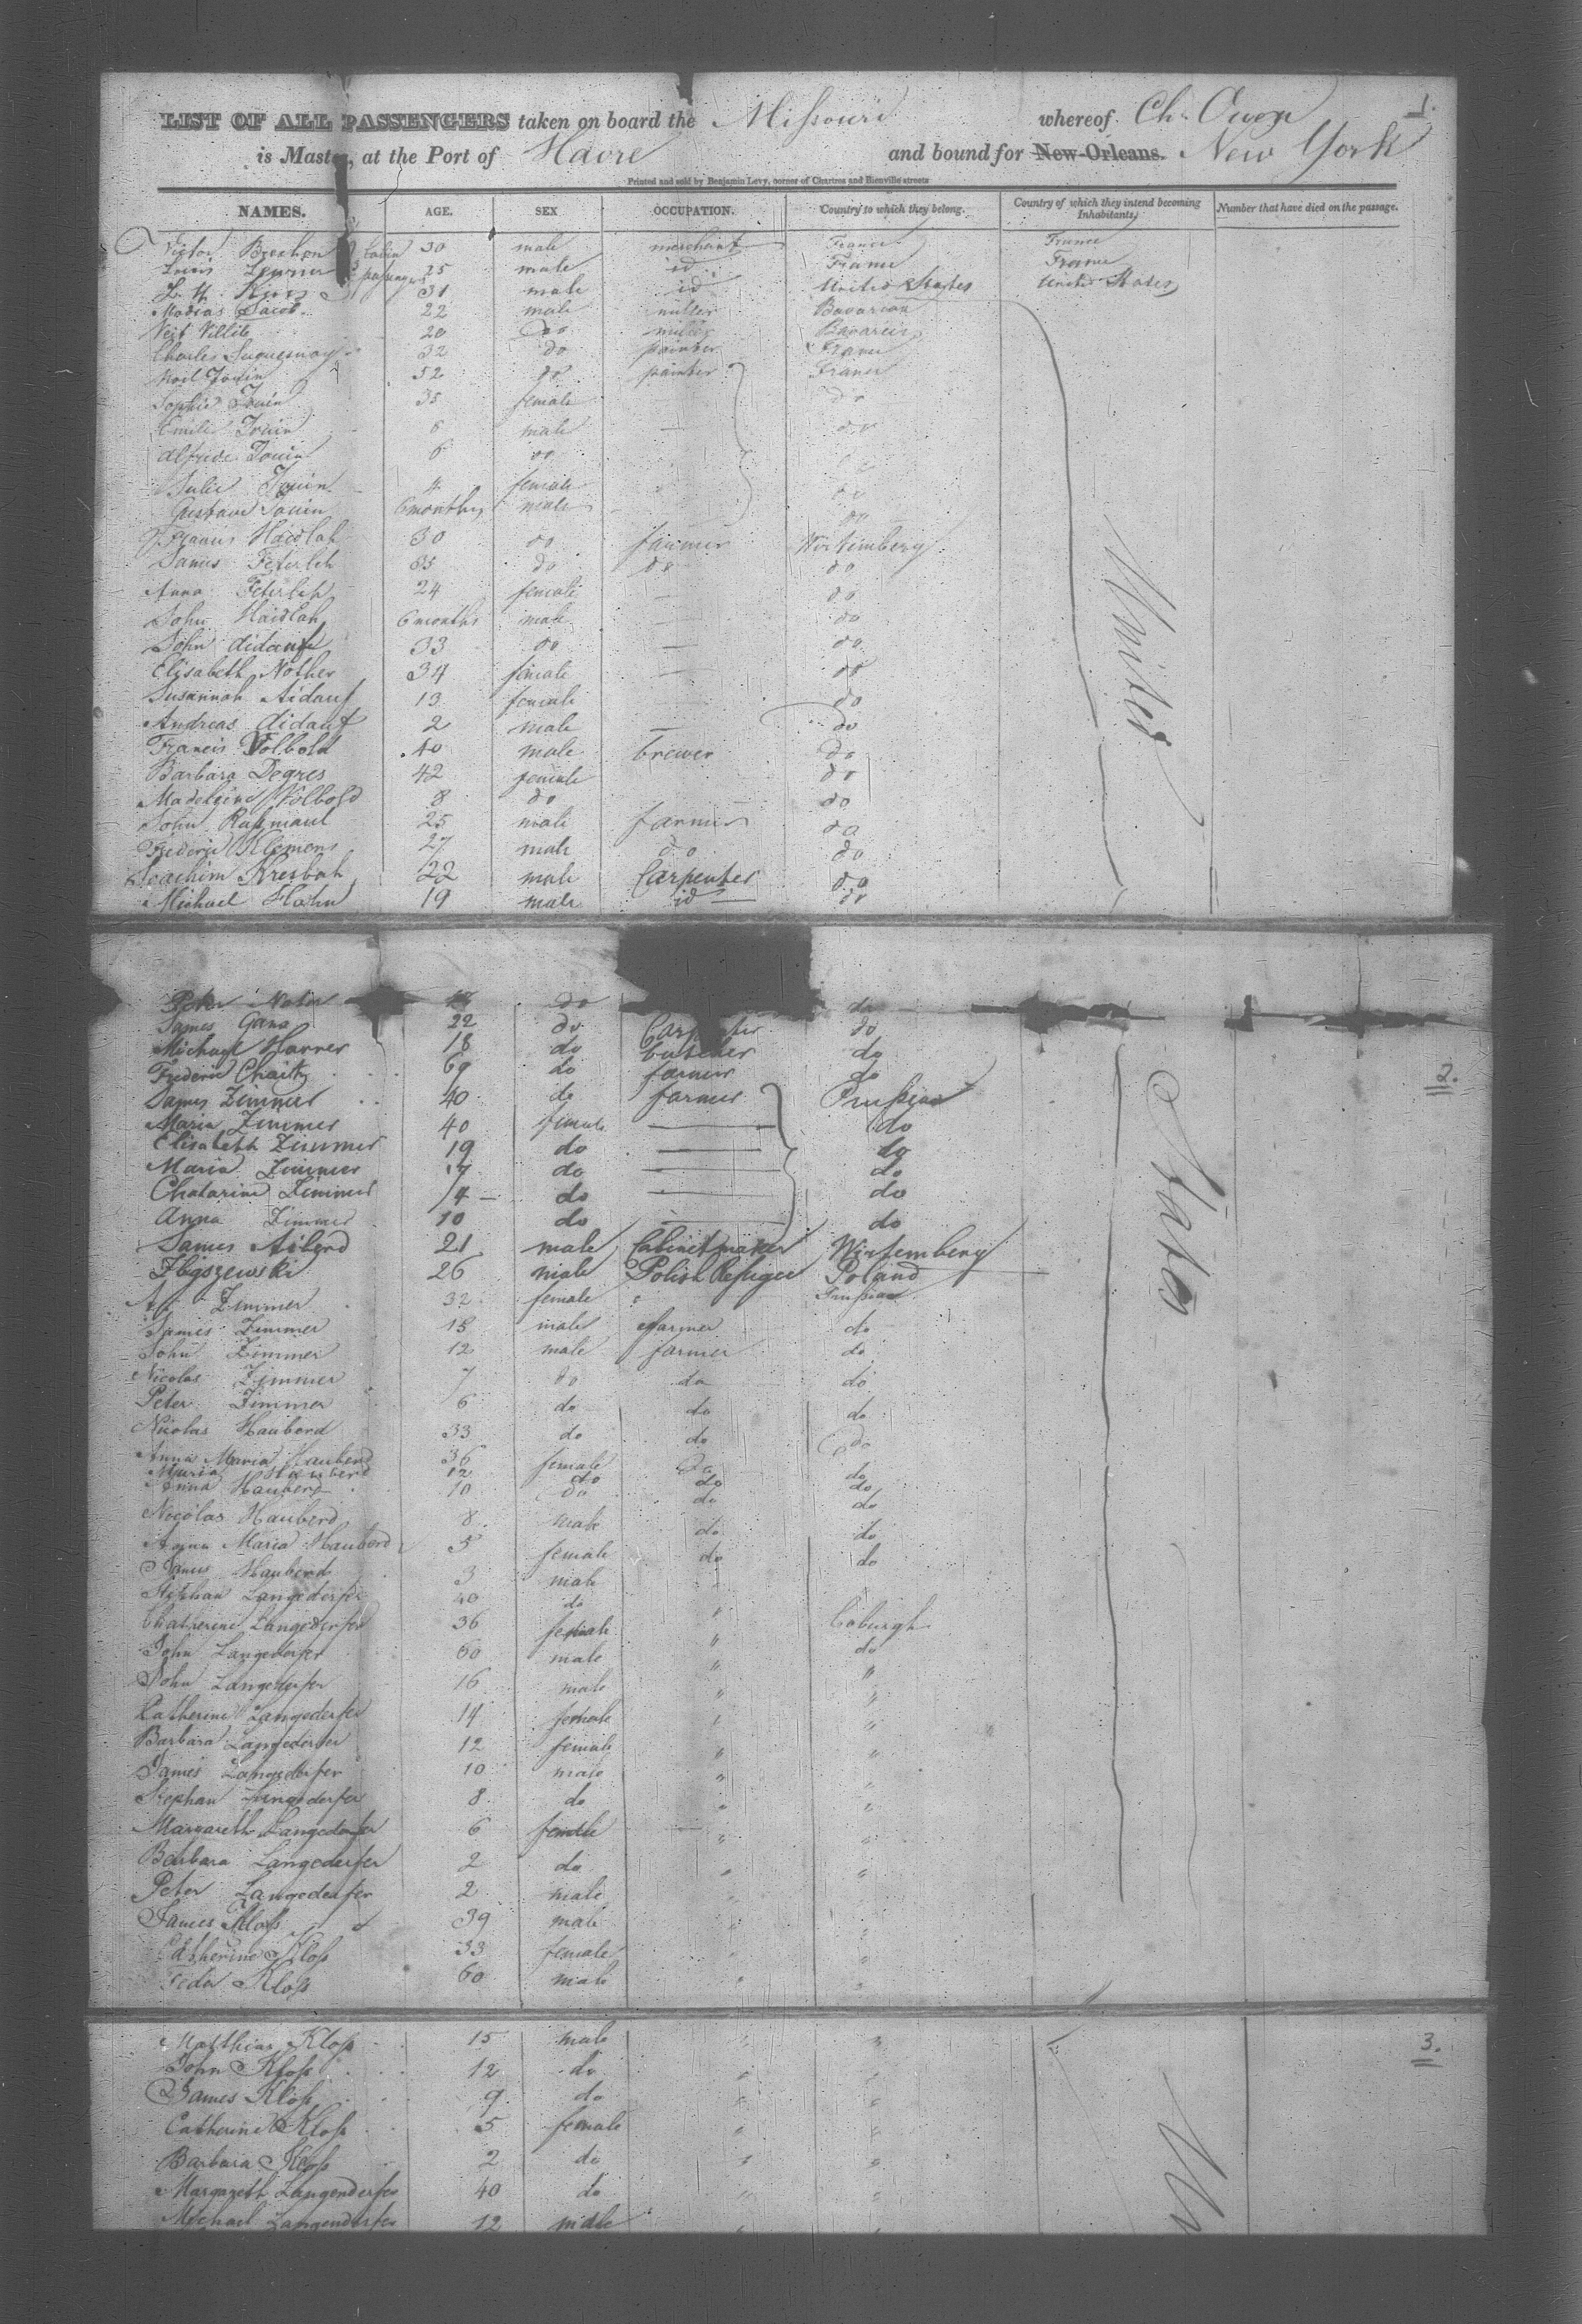 1.
LIST OF ALL PASSENGERS taken on board the Missouri whereof Ch. Owen
is Master, at the Port of Havre and bound for New-Orleans. New York
Printed and sold by Benjamin Levy, corner of Chartres and Bienville streets
NAMES. AGE. SEX OCCUPATION. Country to which they belong. Country of which they intend becoming Inhabitants, Number that have died on the passage.
Victor 30 male merchant France France
Louis 25 male id France France
31 male id United States United States
Jacob 22 male miller Bavarian
Veit Villite 20 do miller
Charles 32 do painter France
Noil Jouin 52 do painter France
Sophie Jouin 35 female do
Emile Jouin 8 male do
Alfride Jouin 6 do
Julie Jouin 4 female do
Gustave Jouin 6 months male do
Francis Haidlah 30 do farmer Wirtemberg
James Feterleh 35 do do do
Anna Feterleh 24 female do
John Haidlah 6 months male do
John Aidauf 33 do do
Elisabeth Nother 34 female do
Susannah Aidauf 13 female do
Andreas Aidauf 2 male do
Francis Volbold 40 male brewer do
Barbara Degres 42 female do
Madeleine Volbold 8 do do
John 25 male farmer do
Frederic Klemens 27 male do do
Joachim Kresbah 22 male Carpenter do
Michael Hahn 19 male id do
United
Peter do do
James Gans 22 do Carpenter do
Michael Harrer 18 do butcher do
Frederic 69 do farmer do
2.
James Zimmer 40 do farmer Prussian
Maria Zimmer 40 female do
Elisabeth Zimmer 19 do do
Maria Zimmer 17 do do
Chatarine Zimmer 14 do do
Anna Zimmer 10 do do
James Aiberd 21 male Cabinetmaker Wirtemberg
Zbyszewski 26 male Polish Refugee Poland
Zimmer 32 female Prussian
James Zimmer 18 male farmer do
John Zimmer 12 male farmer do
Nicolas Zimmer 7 do do do
Peter Zimmer 6 do do do
Nicolas Hauberd 33 do do do
Anna Maria Hauberd 36 female do do
Maria Hauberd 12 do do do
Anna Hauberd 10 do do do
Nocolas Hauberd 8 male do do
Anna Maria Hauberd 5 female do do
James Hauberd 3 male
Stephan Langederfer 40 do
Chatherine Langederfer 36 female " Coburgh
John Langederfer 60 male " do
John Langederfer 16 male " "
Catherine Langederfer 14 female " "
Barbara Langederfer 12 female " "
James Langederfer 10 male " "
Stephan Langederfer 8 do " "
Margareth Langederfer 6 female " "
Barbara Langederfer 2 do " "
Peter Langederfer 2 male
James Kloss 39 male
Catherine Kloss 33 female
Kloss 60 male
States
Matthias Kloss 15 male " "
3.
John Kloss 12 do " "
James Kloss 9 do " "
Catherine Kloss 5 female " "
Barbara Kloss 2 do " "
Margareth Langenderfer 40 do " "
Michael Langenderfer 12 male " "